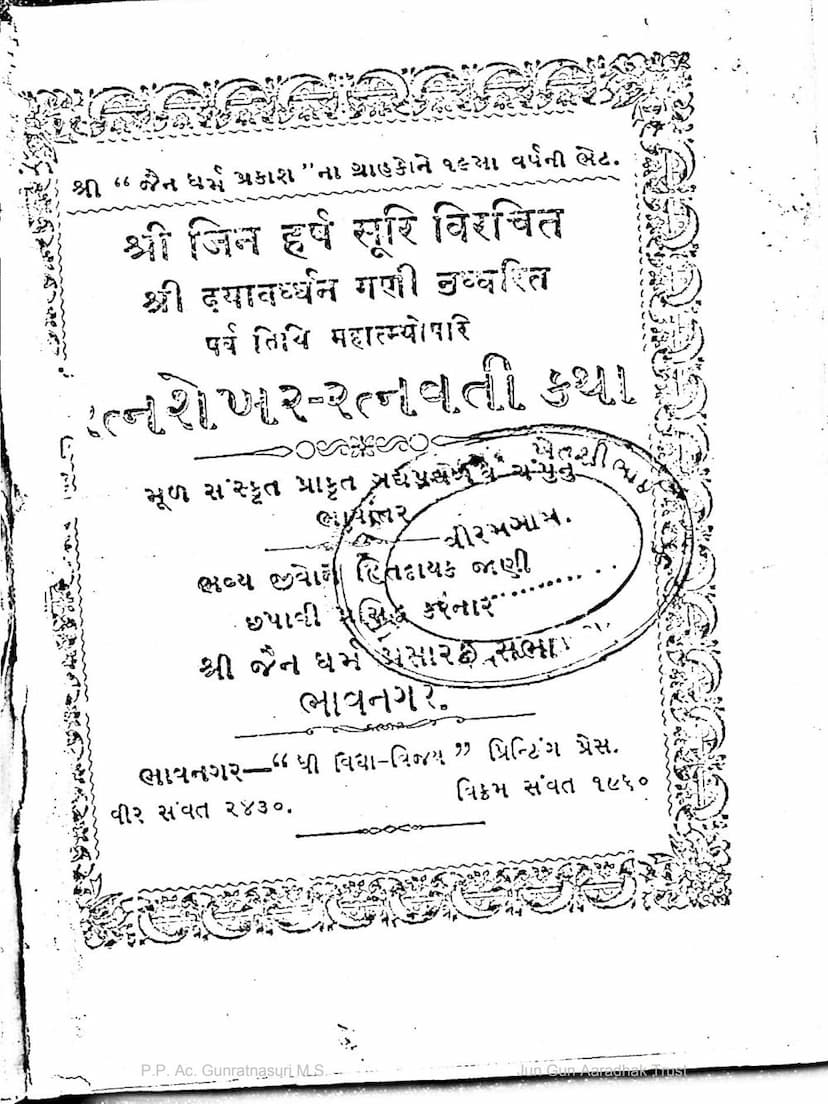 શ્રી “ જૈન ધર્મ પ્રકાશ ”ના ગ્રાહકોને ૧૯મા વર્ષની ભેટ.
श्री जिन हर्ष सूरि विरचित
श्री दयावर्ध्धन गणी
पर्व तिथि महात्म्योपरि
રત્નશેખર-રત્નવતી કથા
મૂળ સંસ્કૃત પ્રાકૃત
ભાષાંતર
વીરમગામ.
ભવ્ય જીવોને હિતદાયક જાણી
છપાવી પ્રસિદ્ધ કરનાર
શ્રી જૈન ધર્મ પ્રસારક સભા
ભાવનગર.
ભાવનગર—“ ધી વિદ્યા-વિજય ” પ્રિન્ટિંગ પ્રેસ.
વીર સંવત ૨૪૩૦.
વિક્રમ સંવત ૧૯૬૦
P.P. Ac. Gunratnasuri M.S.
Jun Gun Aaradhak Trust